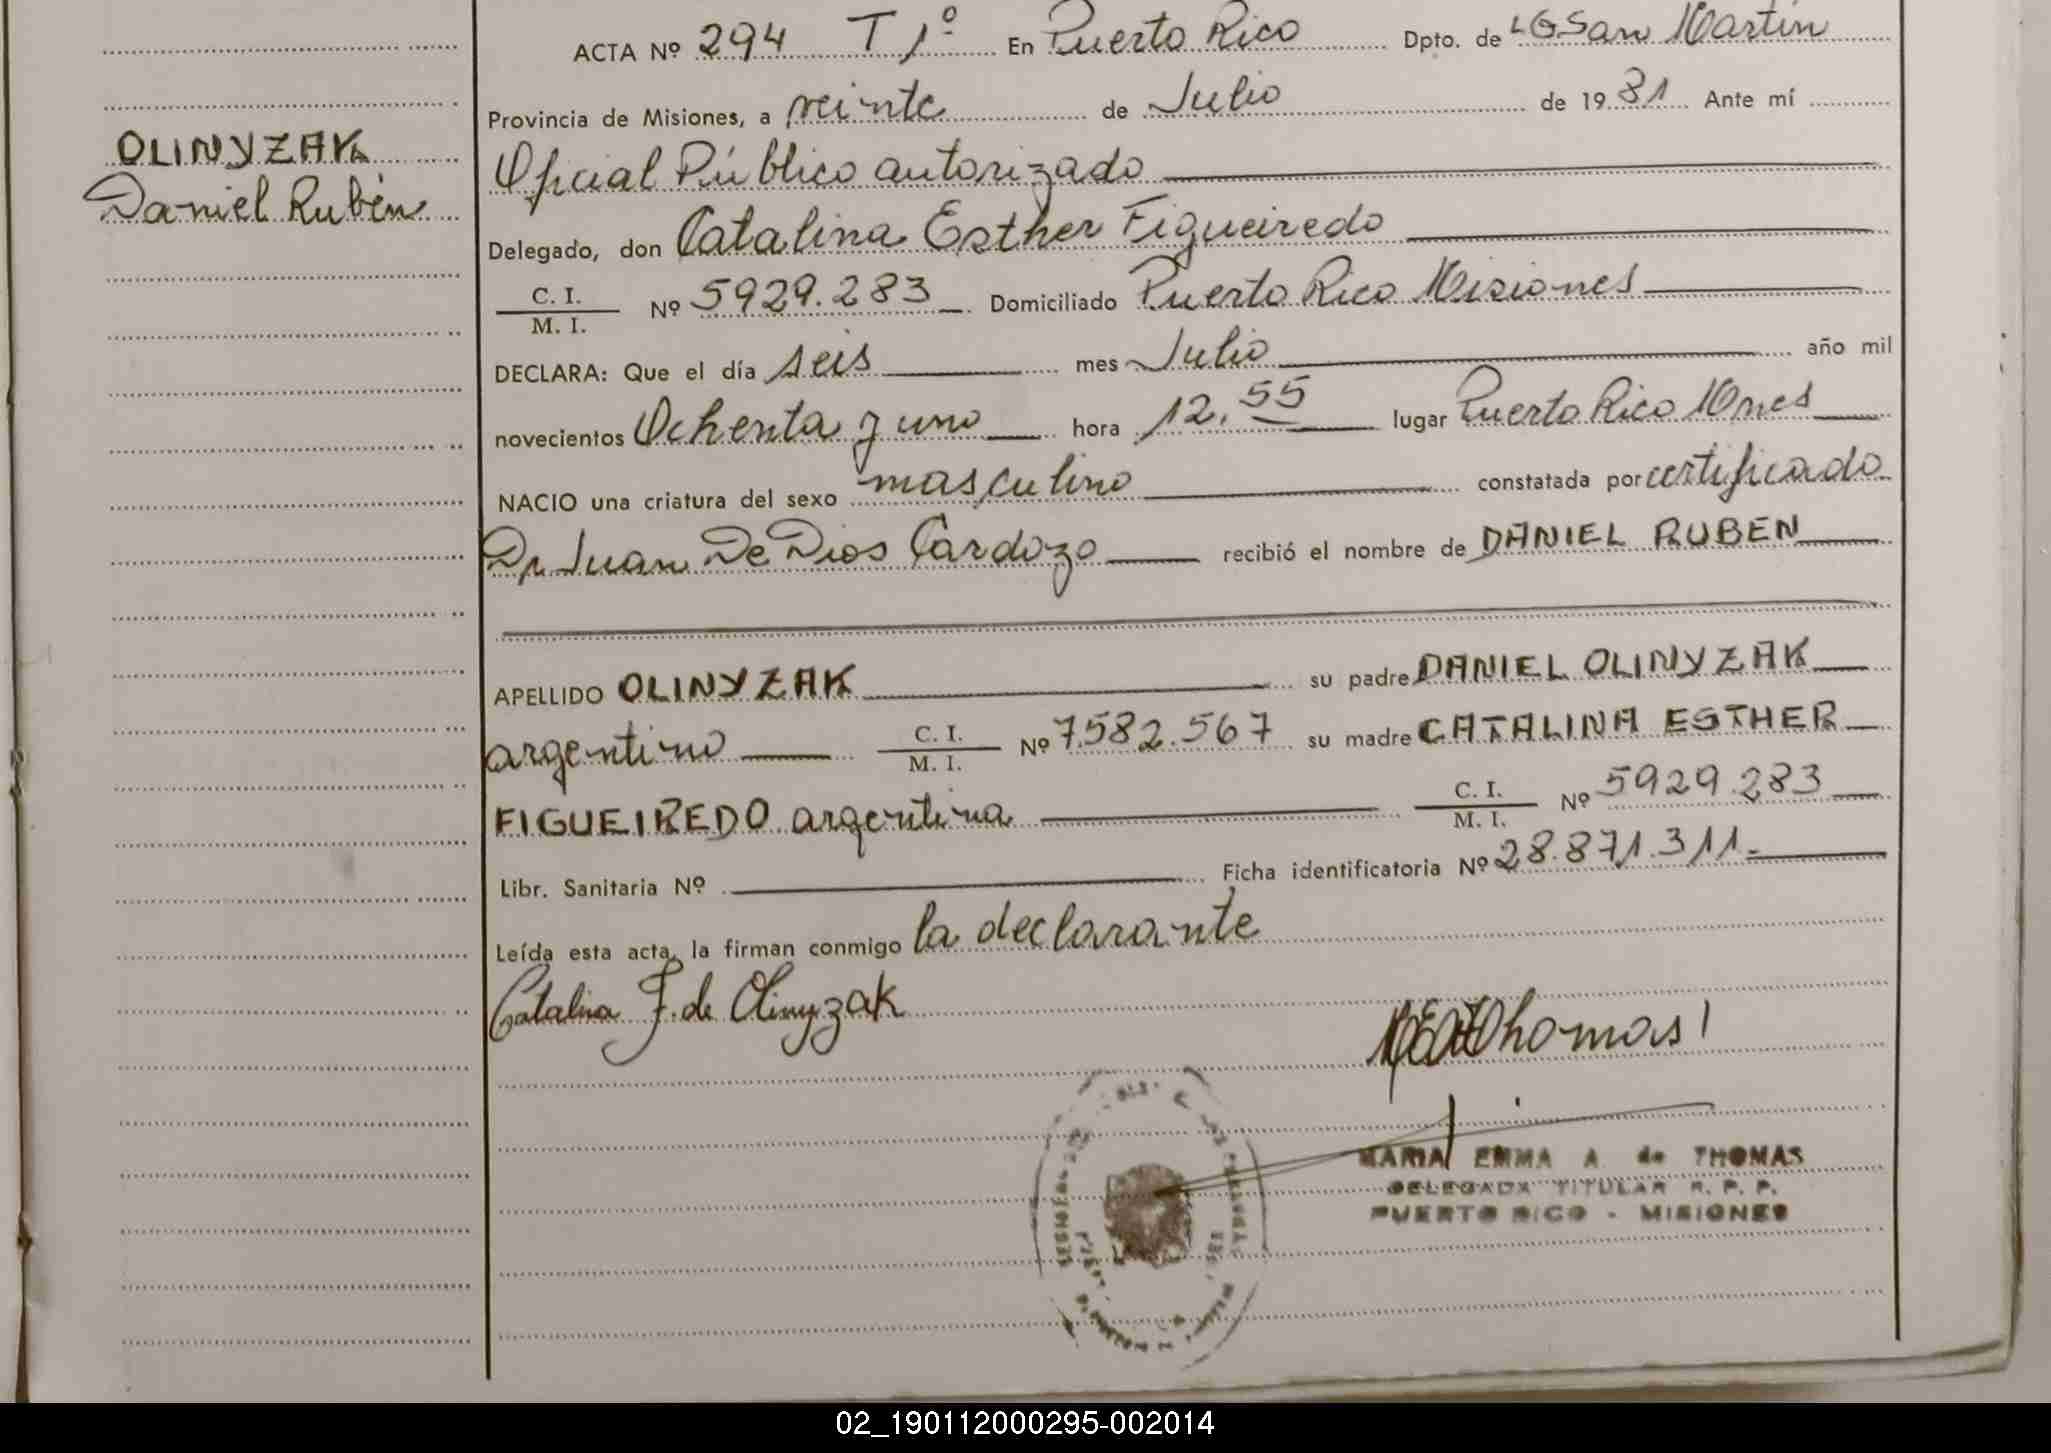 ACTA Nº 294 T 1º En Puerto Rico Dpto. de LG San Martín
Provincia de Misiones, a veinte de Julio de 1981 Ante mí
OLINYZAK
Daniel Rubén
Oficial Público autorizado
Delegado, don Catalina Esther Figueiredo
C. I.
M. I. Nº 5929.283 Domiciliado Puerto Rico Misiones
DECLARA: Que el día seis mes Julio año mil
novecientos Ochenta y uno hora 12.55 lugar Puerto Rico Mnes
NACIO una criatura del sexo masculino constatada por certificado
Dr Juan De Dios Cardozo recibió el nombre de DANIEL RUBEN
APELLIDO OLINYZAK su padre DANIEL OLINYZAK
argentino C. I. M. I. Nº 7.582.567 su madre CATALINA ESTHER
FIGUEIREDO argentina C. I. M. I. Nº 5929.283
Libr. Sanitaria Nº Ficha identificatoria Nº 28.871.311.-
Leída esta acta, la firman conmigo la declarante
Catalina F. de Olinyzak
Thomas
MARIA EMMA A de THOMAS
DELEGADA TITULAR R. P. P.
PUERTO RICO - MISIONES
02_190112000295-002014